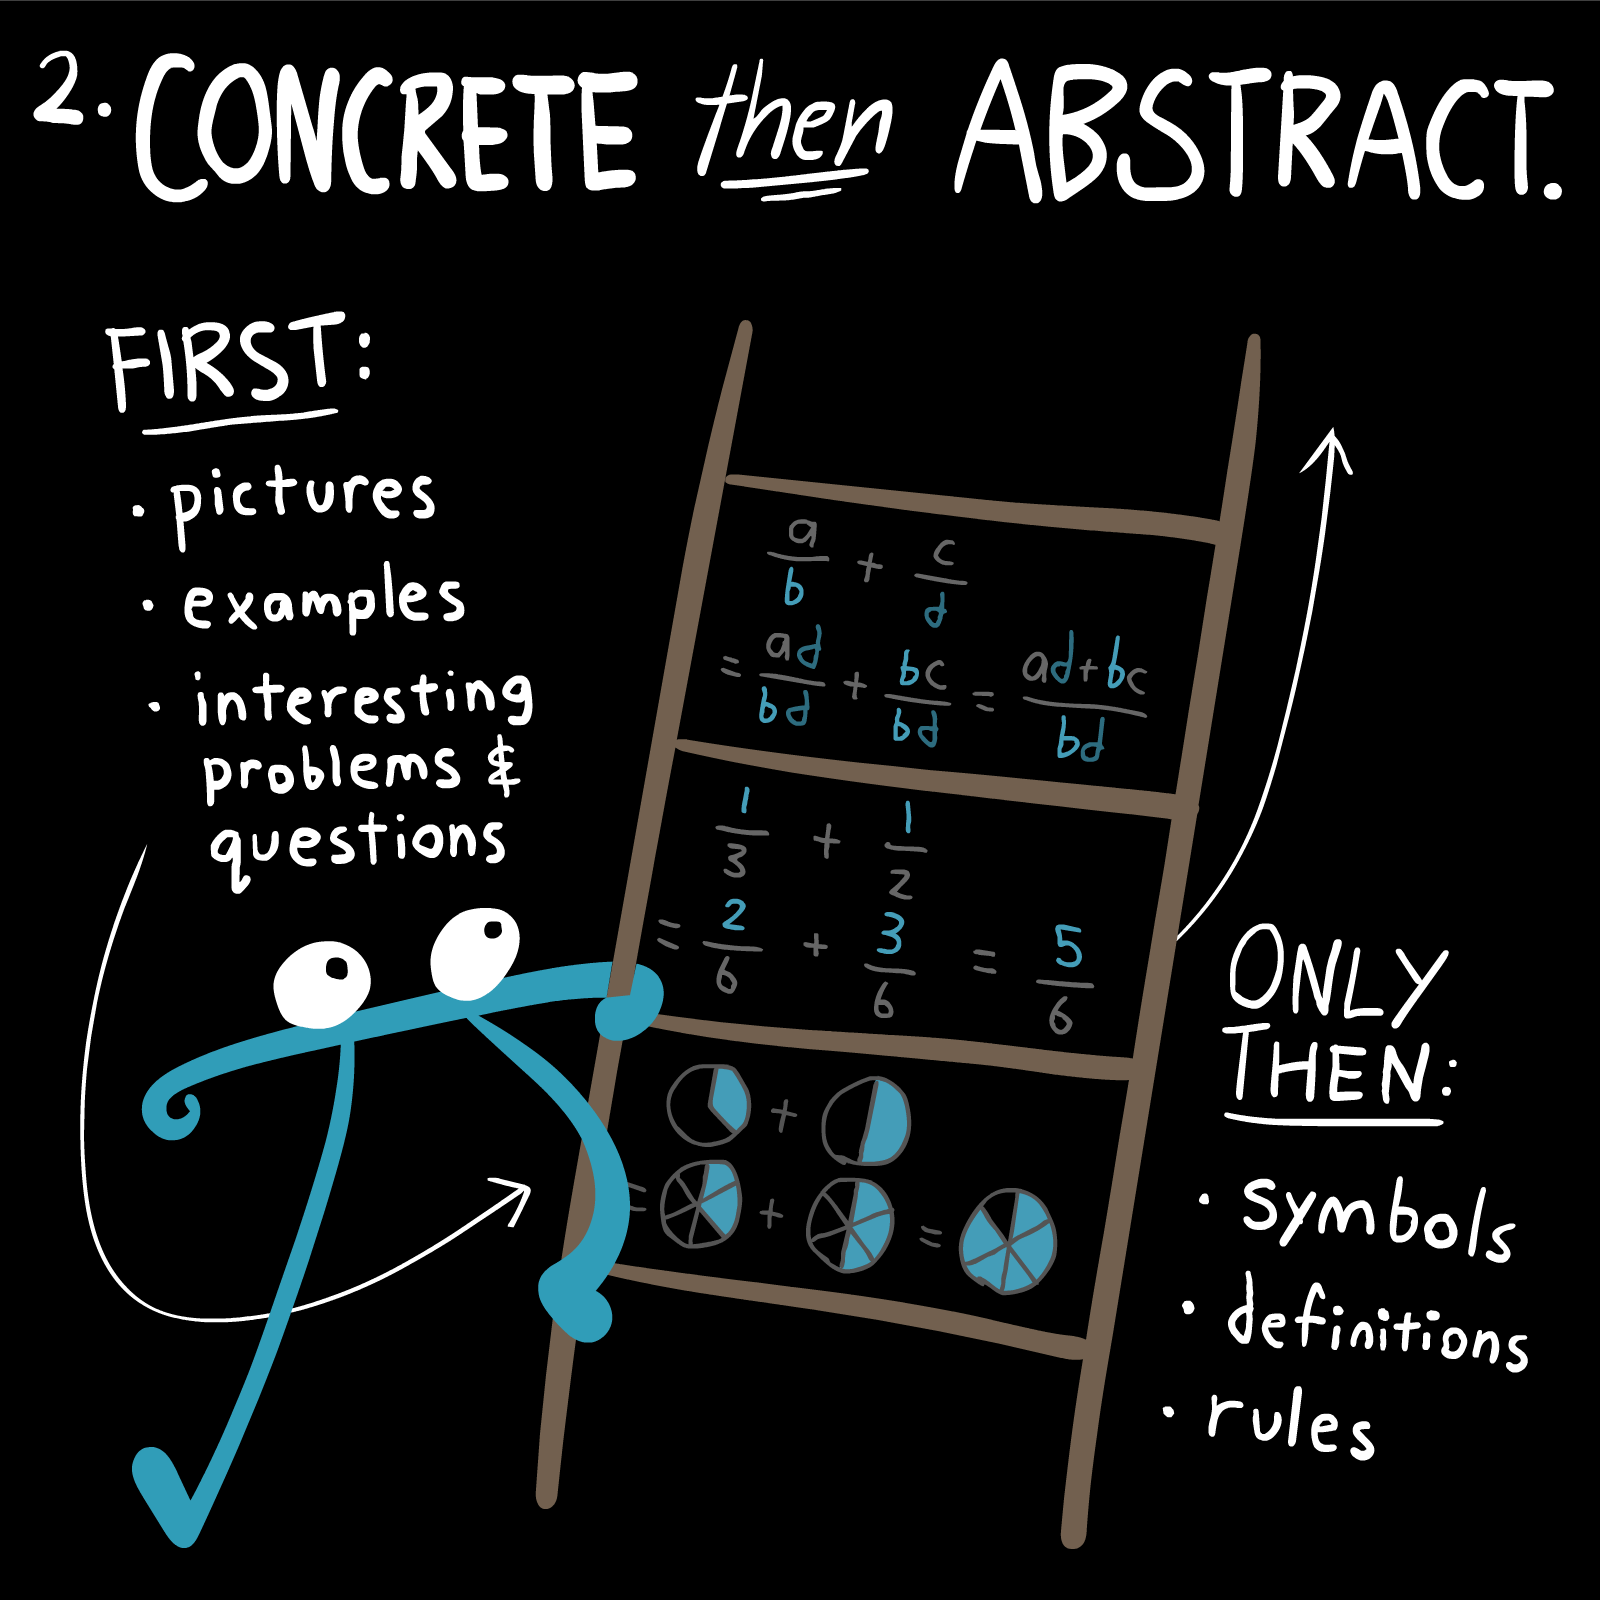 2. CONCRETE then ABSTRACT.
FIRST:
· pictures
· examples
· interesting
problems &
questions
a/b + c/d
= ad/bd + bc/bd = ad+bc/bd
1/3 + 1/2
= 2/6 + 3/6 = 5/6
+
= + =
ONLY
THEN:
· symbols
· definitions
· rules